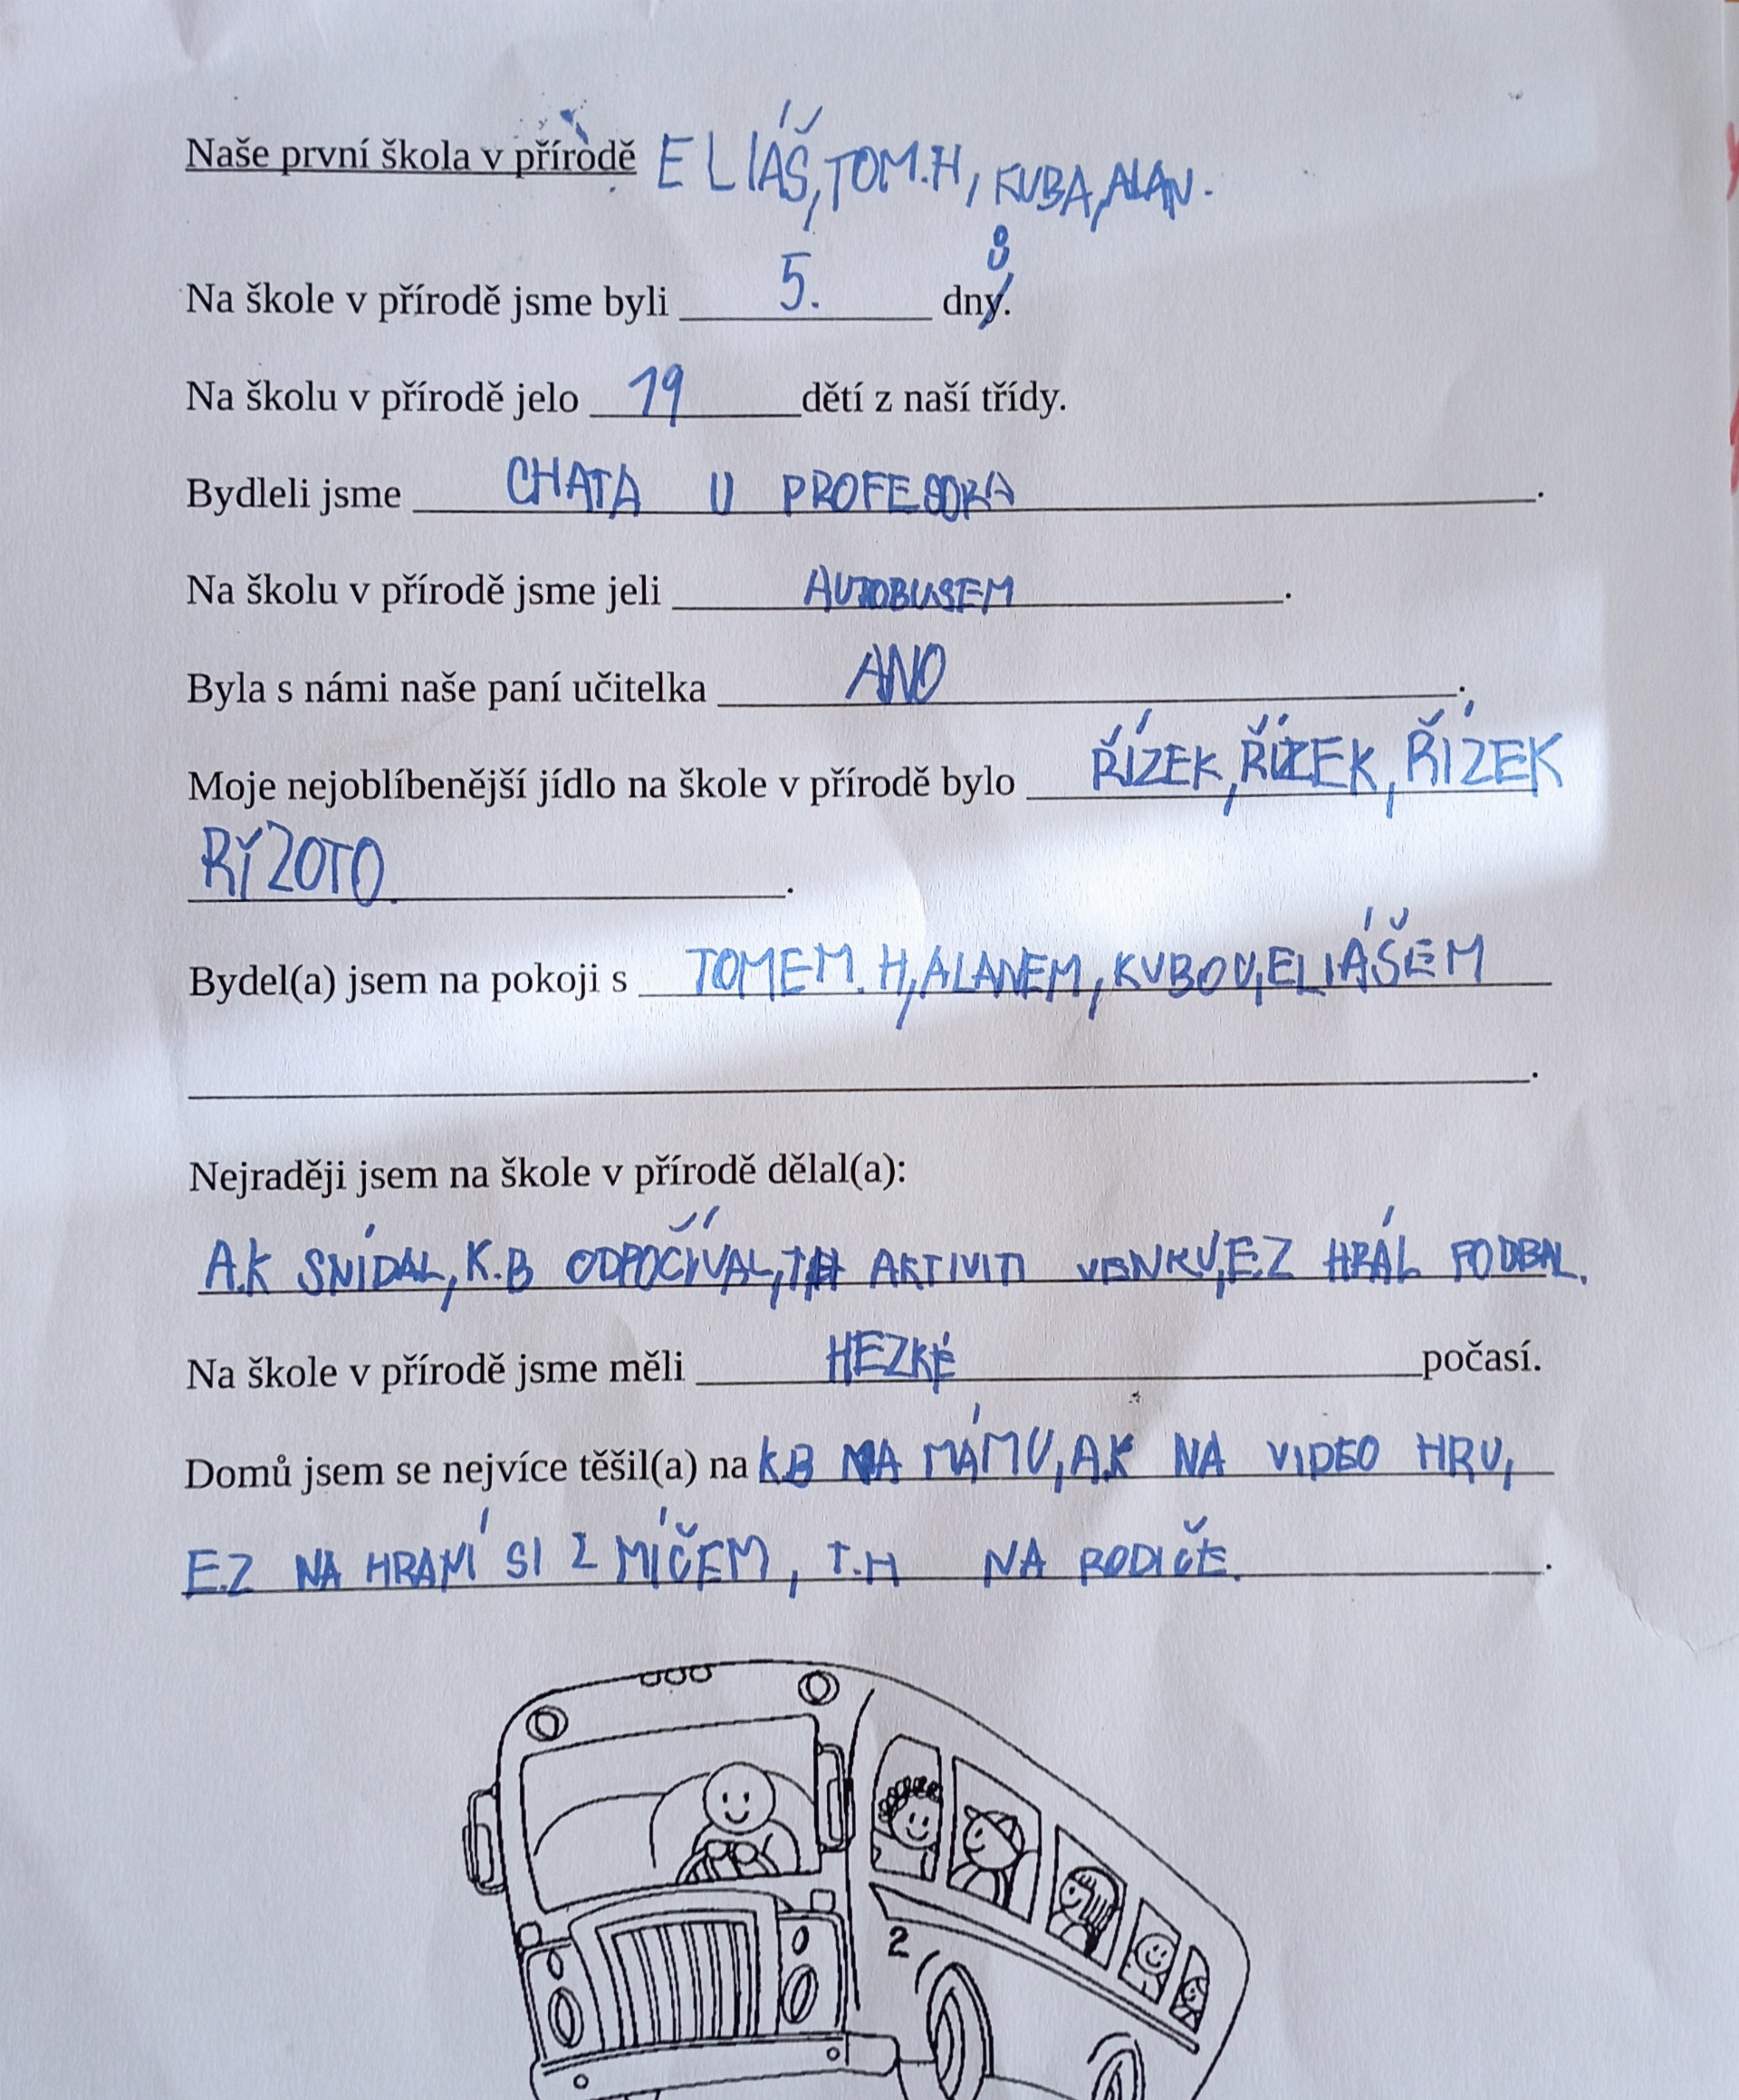 Naše první škola v přírodě ELIÁŠ, TOM.H, KUBA, ALAN.
Na škole v přírodě jsme byli 5. dnů.
Na školu v přírodě jelo 19 dětí z naší třídy.
Bydleli jsme CHATA U PROFESORA.
Na školu v přírodě jsme jeli AUTOBUSEM.
Byla s námi naše paní učitelka ANO.
Moje nejoblíbenější jídlo na škole v přírodě bylo ŘÍZEK, ŘÍZEK, ŘÍZEK
RÝZOTO.
Bydel(a) jsem na pokoji s TOMEM. H, ALANEM, KUBOU, ELIÁŠEM
Nejraději jsem na škole v přírodě dělal(a):
A.K SNÍDAL, K.B ODPOČÍVAL, T.H AKTIVITI VENKU, E.Z HRÁL FODBAL.
Na škole v přírodě jsme měli HEZKÉ počasí.
Domů jsem se nejvíce těšil(a) na K.B NA MÁMU, A.K NA VIDEO HRU,
E.Z NA HRANÍ SI Z MÍČEM, T.H NA RODIČE.
2